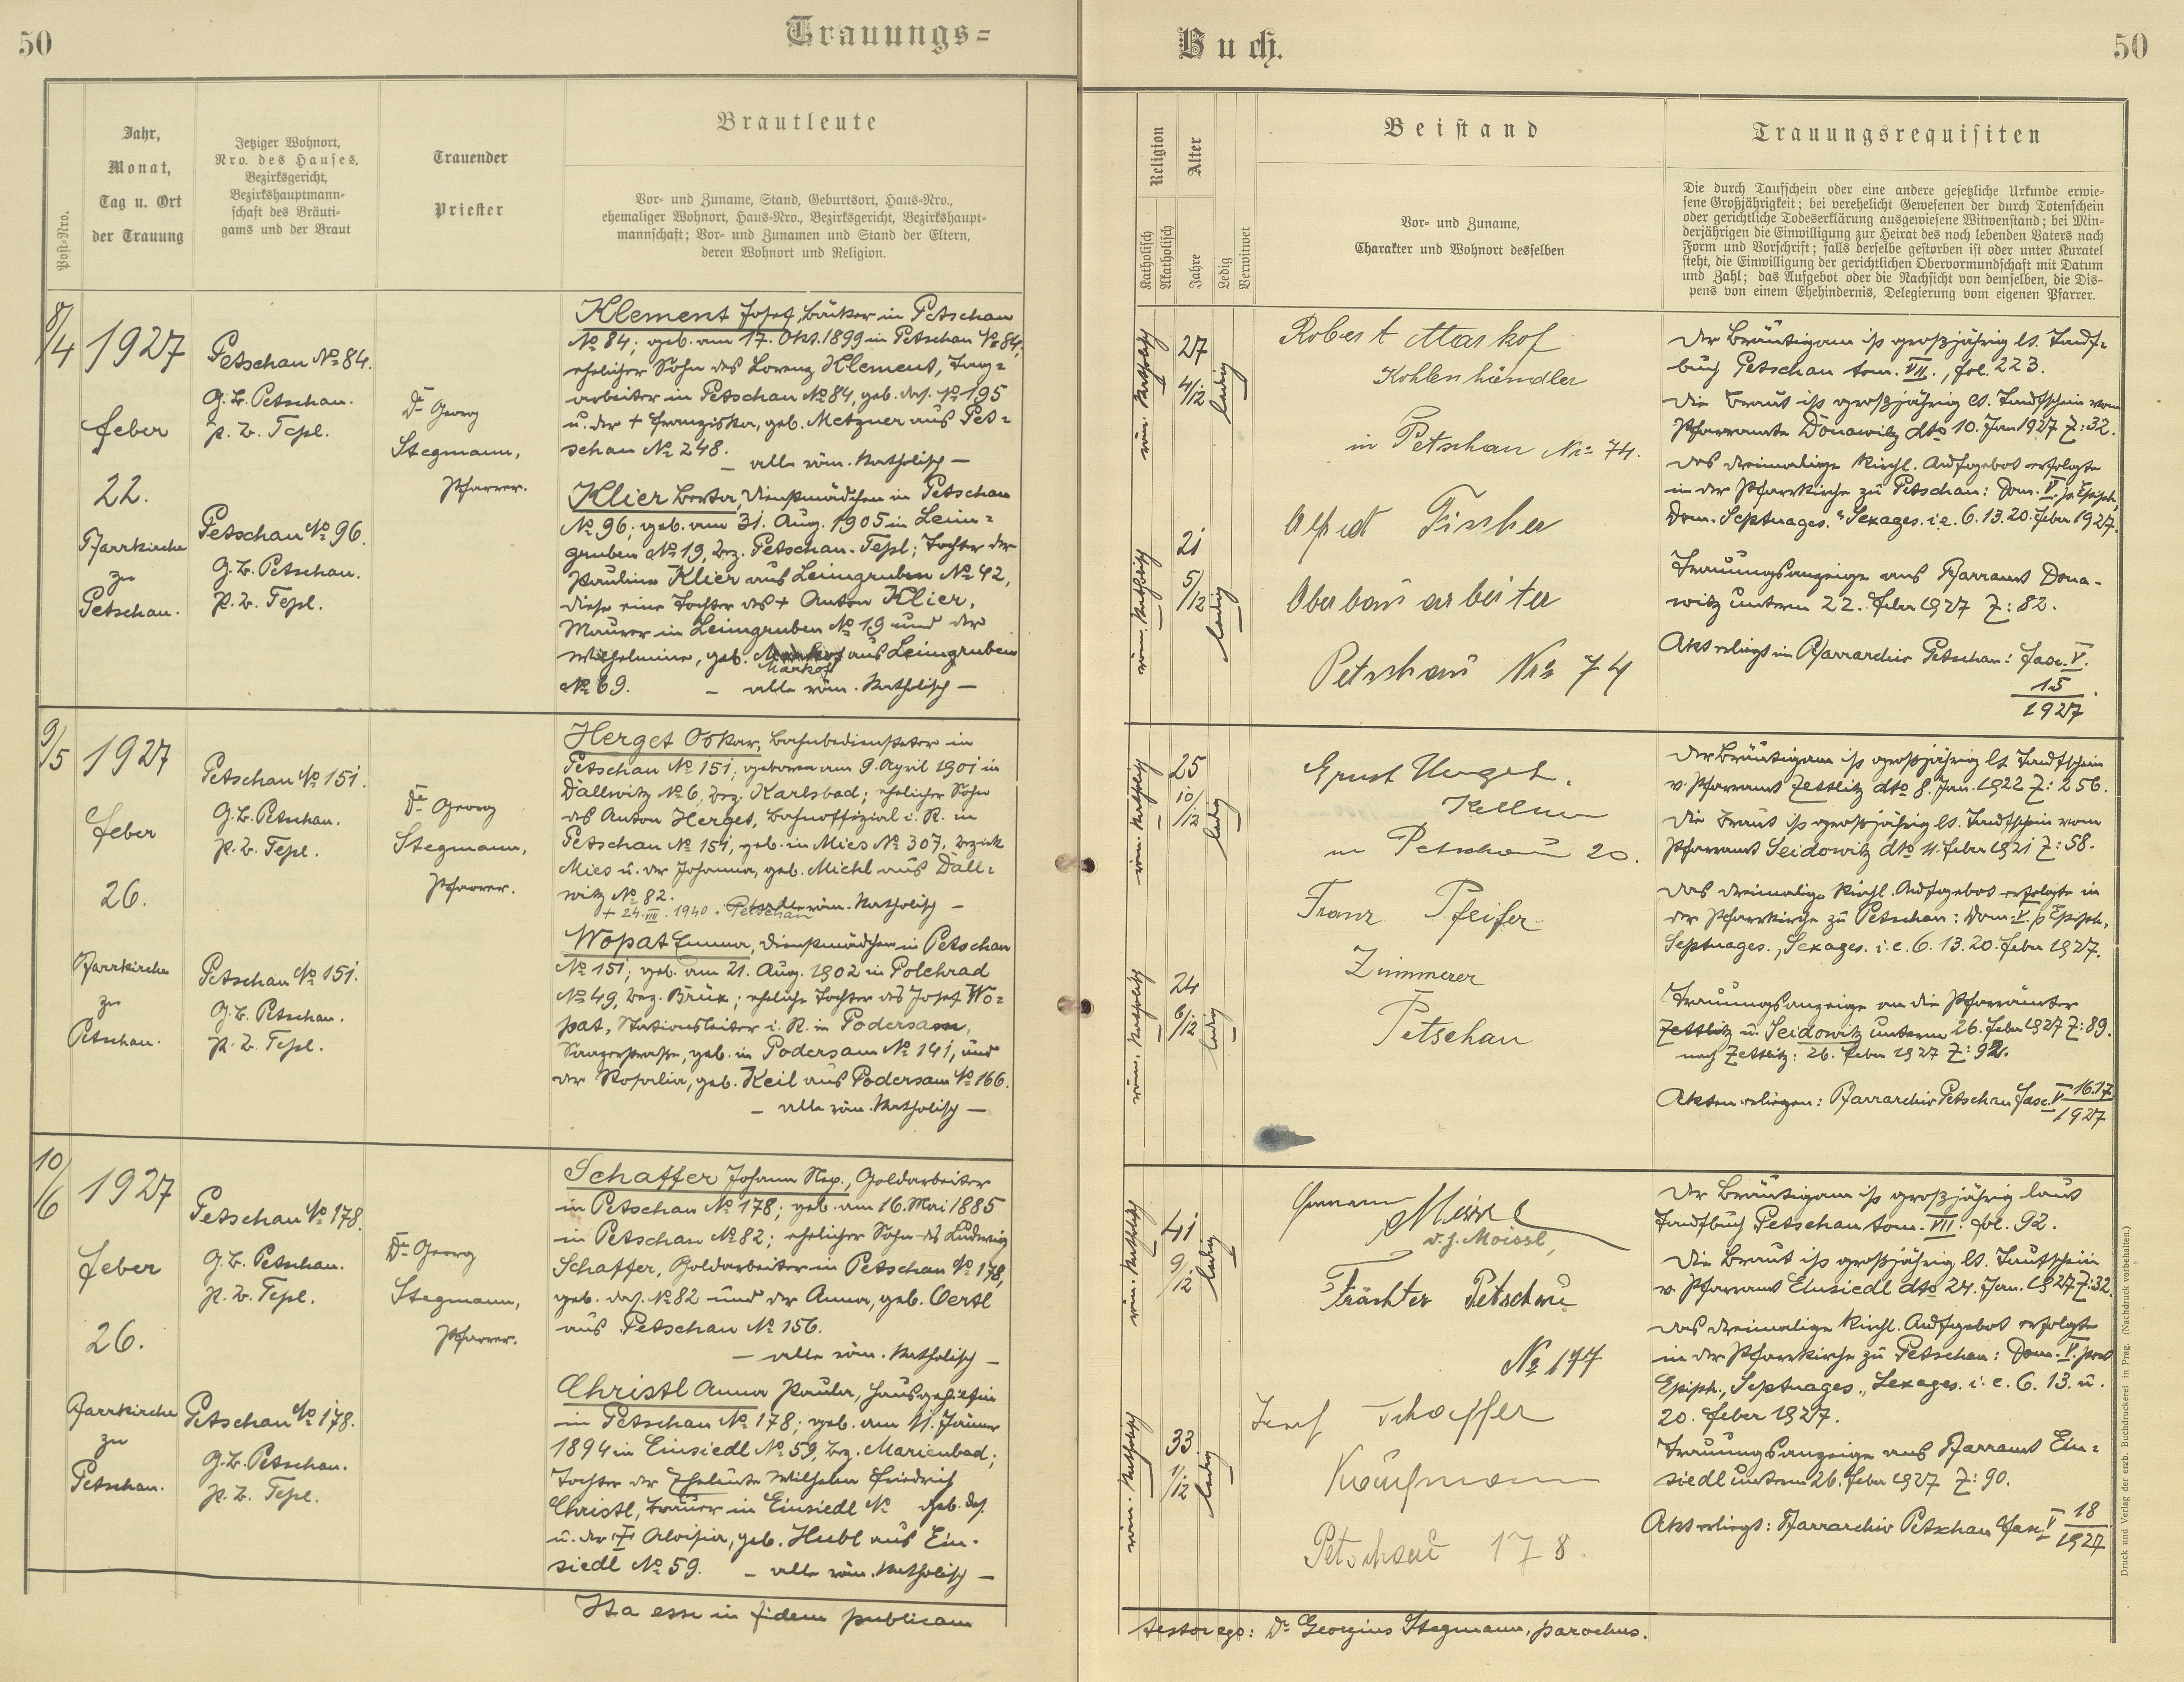 50
Trauungs=
Buch.
50
Post-Nro.
Jahr,
Monat,
Tag u. Ort
der Trauung
Jetziger Wohnort,
Nro. des Hauses,
Bezirksgericht,
Bezirkshauptmann-
schaft des Bräuti-
gams und der Braut
Trauender
Priester
Brautleute
Vor- und Zuname, Stand, Geburtsort, Haus-Nro.,
ehemaliger Wohnort, Haus-Nro., Bezirksgericht, Bezirkshaupt-
mannschaft; Vor- und Zunamen und Stand der Eltern,
deren Wohnort und Religion.
Religion
Katholisch
Akatholisch
Alter
Jahre
Ledig
Verwitwet
Beistand
Vor- und Zuname,
Charakter und Wohnort desselben
Trauungsrequisiten
Die durch Taufschein oder eine andere gesetzliche Urkunde erwie-
sene Großjährigkeit; bei verehelicht Gewesenen der durch Totenschein
oder gerichtliche Todeserklärung ausgewiesene Witwenstand; bei Min-
derjährigen die Einwilligung zur Heirat des noch lebenden Vaters nach
Form und Vorschrift; falls derselbe gestorben ist oder unter Kuratel
steht, die Einwilligung der gerichtlichen Obervormundschaft mit Datum
und Zahl; das Aufgebot oder die Nachsicht von demselben, die Dis-
pens von einem Ehehindernis, Delegierung vom eigenen Pfarrer.
8/4
1927
feber
22.
Pfarrkirche
zu
Petschau.
Petschau No 84.
G.B. Petschau.
p. B. Tepl.
Petschau No 96.
G.B. Petschau.
p. B. Tepl.
Dr Georg
Stegmann,
Pfarrer.
Klement Josef, Bäcker in Petschau
No 84; geb. am 17. Okt. 1899 in Petschau No 84,
ehelicher Sohn des Lorenz Klement, Tag=
arbeiter in Petschau No 84, geb. das. No 195
u. der + Franziska, geb. Metzner aus Pet=
schau No 248.
– alle röm. katholisch –
Klier Berta, Dienstmädchen in Petschau
No 96; geb. am 31. Aug. 1905 in Leim=
gruben No 19, Bez. Petschau-Tepl; Tochter der
Pauline Klier aus Leimgruben No 42,
diese eine Tochter des + Anton Klier,
Maurer in Leimgruben No 19 und der
Wilhelmine, geb. aus Leimgruben
Markof
No 69. – alle röm. katholisch –
röm. katholisch
27
4/12
ledig
röm. katholisch
21
5/12
ledig
Robert Markof
Kohlenhändler
in Petschau No 74.
Alfred Fischer
Oberbauarbeiter
Petschau No 74
Der Bräutigam ist großjährig lt. Tauf=
buch Petschau tom. VII., fol. 223.
Die Braut ist großjährig lt. Taufschein vom
Pfarramte Donawitz dto 10. Jan 1927 Z: 32.
Das dreimalige kirchl. Aufgebot erfolgte
in der Pfarrkirche zu Petschau: Dom. V. p. Epiph.
Dom. Septuages. u Sexages. i.e. 6. 13. 20. feber 1927.
Trauungsanzeige ans Pfarramt Dona-
witz unterm 22. feber 1927 Z: 82.
Akt erliegt im Pfarrarchiv Petschau: fasc. V.
15
1927
9/5
1927
feber
26.
Pfarrkirche
zu
Petschau.
Petschau No 151.
G.B. Petschau.
p. B. Tepl.
Petschau No 151.
G.B. Petschau.
p. B. Tepl.
Dr Georg
Stegmann,
Pfarrer.
Herget Oskar, Bahnbediensteter in
Petschau No 151; geboren am 9. April 1901 in
Dallwitz No 6, Bez. Karlsbad; ehelicher Sohn
des Anton Herget, Bahnoffizial i. R. in
Petschau No 151, geb. in Mies No 307, Bezirk
Mies u. der Johanna, geb. Michl aus Dall=
witz No 82.
– alle röm. katholisch –
+ 24. VIII. 1940. Petschau
Wopat Emma, Dienstmädchen in Petschau
No 151; geb. am 21. Aug. 1902 in Polehrad
No 49, Bez. Brüx; eheliche Tochter des Josef Wo=
pat, Stationsleiter i. R. in Podersam,
Saazerstraße, geb. in Podersam No 141, und
der Rosalia, geb. Keil aus Podersam No 166.
– alle röm. katholisch –
röm. katholisch
25
10/12
ledig
röm. katholisch
24
6/12
ledig
Ernst Herget.
Kellner
in Petschau 20.
Franz Pfeifer
Zimmerer
Petschau
Der Bräutigam ist großjährig lt Taufschein
v. Pfarramt Zettlitz dto 8. Jan. 1922 Z: 256.
Die Braut ist großjährig lt. Taufschein vom
Pfarramt Seidowitz dto 4. feber 1921 Z: 58.
Das dreimalige kirchl. Aufgebot erfolgte in
der Pfarrkirche zu Petschau: Dom. V. p Epiph.,
Septuages., Sexages. i. e. 6. 13. 20. feber 1927.
Trauungsanzeige an die Pfarrämter
Zettlitz u. Seidowitz unterm 26. feber 1927 Z: 89.
nach Zettlitz: 26. feber 1927 Z: 92.
Akten erliegen: Pfarrarchiv Petschau fasc. V 16.17
1927
10/6
1927
feber
26.
Pfarrkirche
zu
Petschau.
Petschau No 178.
G.B. Petschau.
p. B. Tepl.
Petschau No 178.
G.B. Petschau.
p. B. Tepl.
Dr Georg
Stegmann,
Pfarrer.
Schaffer Johann Nep., Goldarbeiter
in Petschau No 178; geb. am 16. Mai 1885
in Petschau No 82; ehelicher Sohn des Ludwig
Schaffer, Goldarbeiter in Petschau No 178,
geb. das. No 82 und der Anna, geb. Oertl
aus Petschau No 156.
– alle röm. katholisch –
Christl Anna Paula, Hausgehilfin
in Petschau No 178; geb. am 11. Jänner
1894 in Einsiedl No 59, Bez. Marienbad;
Tochter der Eheleute Wilhelm Friedrich
Christl, Brauer in Einsiedl No geb. das.
u. der + Aloisia, geb. Hubl aus Ein-
siedl No 59. – alle röm. katholisch –
röm. katholisch
41
9/12
ledig
röm. katholisch
33
1/12
ledig
Hermann
v. g. Moissl,
Petschau
No 177
Josef Schaffer
Kaufmann
Petschau 178.
Der Bräutigam ist großjährig laut
Taufbuch Petschau tom. VII. fol. 92.
Die Braut ist großjährig lt. Taufschein
v. Pfarramt Einsiedl dto 24. Jan. 1927 Z: 32.
Das dreimalige kirchl. Aufgebot erfolgte
in der Pfarrkirche zu Petschau: Dom. V. post
Epiph., Septuages., Sexages. i. e. 6. 13. u.
20. feber 1927.
Trauungsanzeige ans Pfarramt Ein=
siedl unterm 26. feber 1927 Z: 90.
Akt erliegt: Pfarrarchiv Petschau fasc. V 18
1927
Ita esse in fidem publicam
testor ego: Dr Georgius Stegmann, parochus.
Druck und Verlag der erzb. Buchdruckerei in Prag. (Nachdruck vorbehalten.)